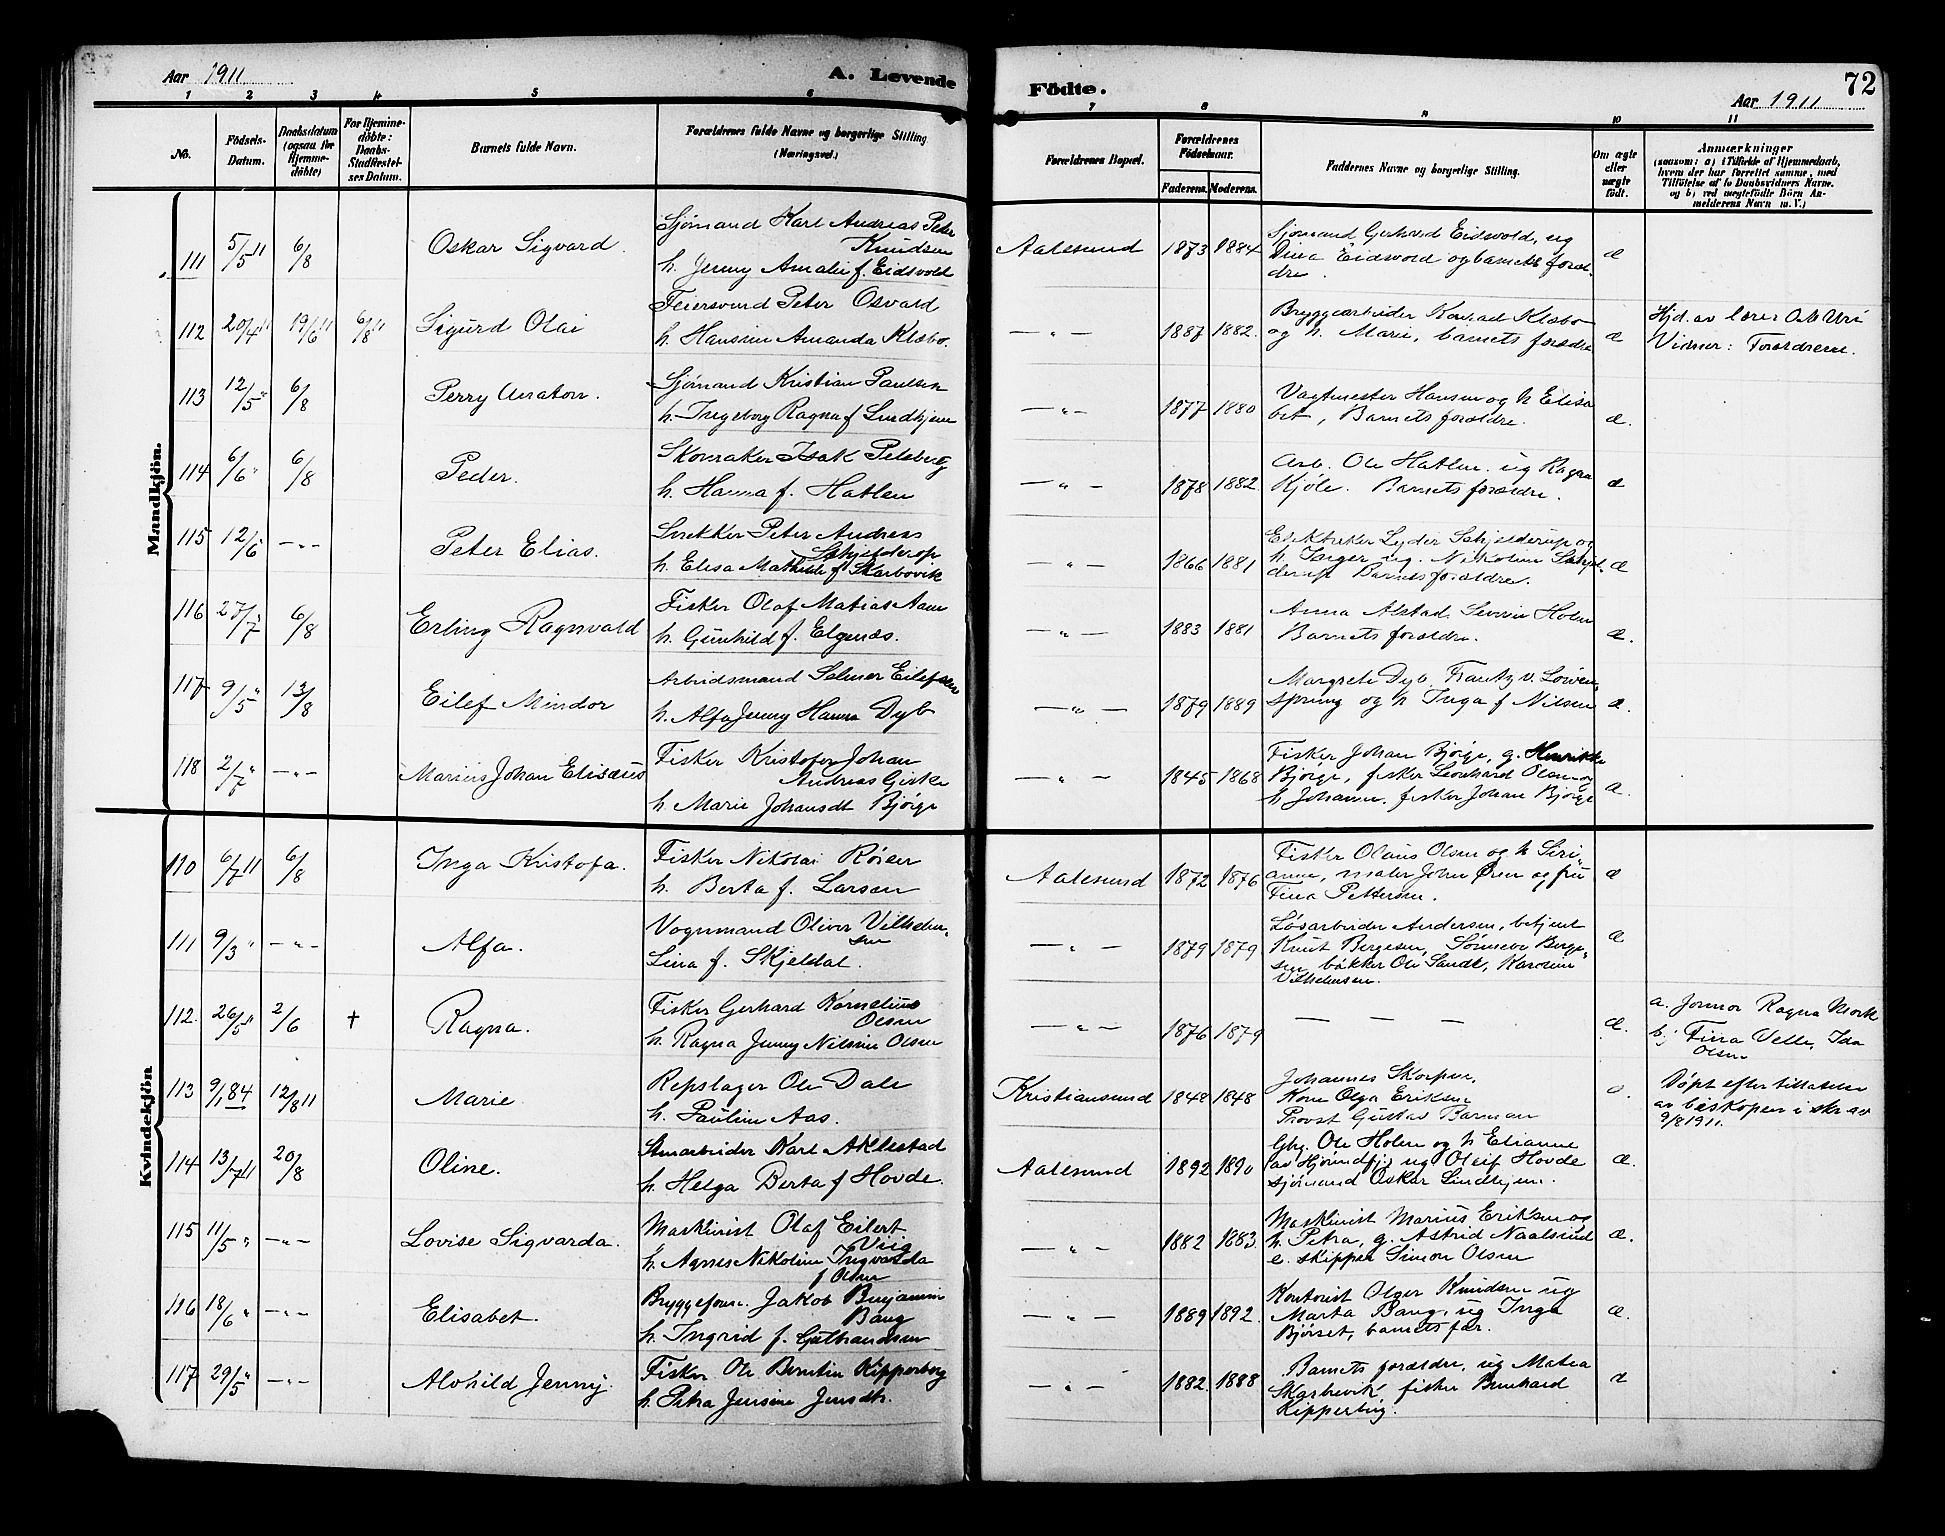 Aar 1911
A. Levende Födte.
72
Aar 1911
1 2 3 4 5 6 7 8 9 10 11
No.
Födsels-
Datum.
Daabsdatum
(ogsaa for
Hjemme-
döbte)
For Hjemme-
döbte:
Daabs-
Stadfæstel-
ses Datum.
Barnets fulde Navn.
Forældrenes fulde Navne og borgerlige Stilling
(Næringsvei.)
Forældrenes Bopæl.
Forældrenes
Födselsaar.
Faderens. Moderens.
Faddernes Navne og borgerlige Stilling.
Om ægte
eller
uægte
födt.
Anmærkninger
(saasom: a) i Tilfælde af Hjemmedaab,
hvem der har forrettet samme, med
Tilföielse af to Daabsvidners Navne.
og b) ved uægtefödte Börn An-
melderens Navn m. V.)
Mandkjön.
111 5/5 11 6/8 Oskar Sigvard.
Sjømand Karl Andreas Peter
Knudsen
h. Jenny Amalie f. Eidsvold
Aalesund 1873 1884
Sjømand Gerhard Eidsvold, ug
Dina Eidsvold og barnets foræl-
dre.
æ
112 20/4 11 19/6 11 6/8 11 Sigurd Olai
Feiersvend Peter Osvald
h. Hansine Amanda Klæbo.
— „ — 1887 1882.
Bryggearbeider Konrad Klæbo
og h. Marie, barnets forældre
æ
Hjd. av lærer O. M. Uri
Vidner: Forældrene.
113 12/5 „ 6/8 Perry Anaton.
Sjømand Kristian Paulsen
h. Ingeborg Ragna f Lindhjem
— „ — 1877 1880
Vagtmester Hansen og h Elisa
bet, Barnets forældre.
æ.
114 6/6 „ 6/8 Peder.
Skomaker Isak Pilskog
h. Hanna f. Hatlen
— „ — 1878 1882.
Arb. Ole Hatlen. ug Ragna
Kjöle. Barnets forældre.
æ
115 12/6 — „ — Peter Elias.
Snekker Peter Andreas
Schjelderop
h. Elisa Mathilde f Skarbövik
— „ — 1866 1881
Lyder Schjelderup og
h. Inger ug. Nikoline Schjel-
derup Barnets forældre.
æ
116 27/7 6/8 Erling Ragnvald
Fisker Olaf Matias Aam
h. Gunhild f. Elgenæs.
— „ — 1883 1881
Anna Alstad Severin Holm
Barnets forældre.
æ.
117 9/5 „ 13/8 Eilef Mindor
Arbeidsmand Selmer Eilefsen
h. Alfa Jenny Hanna Dyb
— „ — 1879 1889
Margrete Dyb, Frantz v. Löwen-
sprung og h Inga f Nilsen
æ.
118 2/7 „ — „ — Marius Johan Elisæus
Fisker Kristofer Johan
Andreas Giske
h. Marie Johansdt Bjørge
— „ — 1845 1868
Fisker Johan Bjørge, g. Henrikke
Bjørge, fisker Leonhard Olsen og
h Johanne. fisker Johan Bjørge
æ.
Kvindekjön
110 6/7 11 6/8 Inga Kristofa.
Fisker Nikolai Röisen
h. Berta f. Larsen
Aalesund 1872 1876
Fisker Olaus Olsen og h Siri-
anne, maler John Ören og fru
Fina Pettersen.
æ
111 9/3 „ — „ — Alfa.
Vognmand Oliver Vilhelm-
sen
Lina f. Skjeldal.
— „ — 1879 1879
Løsarbeider Andersen, betjent
Knut Bergesen, Sönneve Berge-
sen, bakker Ole Sande, Karoline
Vilhelmsen.
æ
112. 26/5 11 2/6 † Ragna.
Fisker Gerhard Kornelius
Olsen
h. Ragna Jenny Nilsine Olsen
— „ — 1876 1879
— — —
æ.
a. Jormor Ragna Mork
b. Fina Velle, Ida
Olsen
113 9/1 84 12/8 11 Marie.
Repslager Ole Dale
h. Pauline Aas.
Kristiansund 1848 1848
Johannes Skorpen,
Kone Olga Eriksen
Provst Gustav Barman
Döpt efter tilladelse
av biskopen i skr. av
9/8 1911.
114 13/7 11 20/8 Oline.
Stenarbeider Karl Aklestad
h. Helga Berta f Hovde.
Aalesund 1892 1890
Gbr. Ole Holen og h Elianne
av Hjørundfj. ug Oleif Hovde
sjømand Oskar Lindhjem.
æ.
115 11/5 „ — „ — Lovise Sigvarda.
Maskinist Olaf Eilert
Viig
h. Agnes Nikoline Ingvarda
f Olsen
— „ — 1882 1883.
Maskinist Marius Eriksen og
h. Petra, g. Astrid Naalsund
e. skipper Simon Olsen
æ.
116 18/6 „ — „ — Elisabet.
Bryggeform. Jakob Benjamin
Bang
h. Ingrid f. Gulbrandsen
— „ — 1889 1892.
Kontorist Olger Knudsen ug
Marta Bang, ug Inga
Bjørset, barnets far.
æ.
117 29/5 „ — „ — Alvhild Jenny
Fisker Ole Berntin Kipperberg
h. Petra Jensine Jensdt.
— „ — 1882. 1888
Barnets forældre, ug Matea
Skarbövik, fisker Bernhard
Kipperberg.
æ